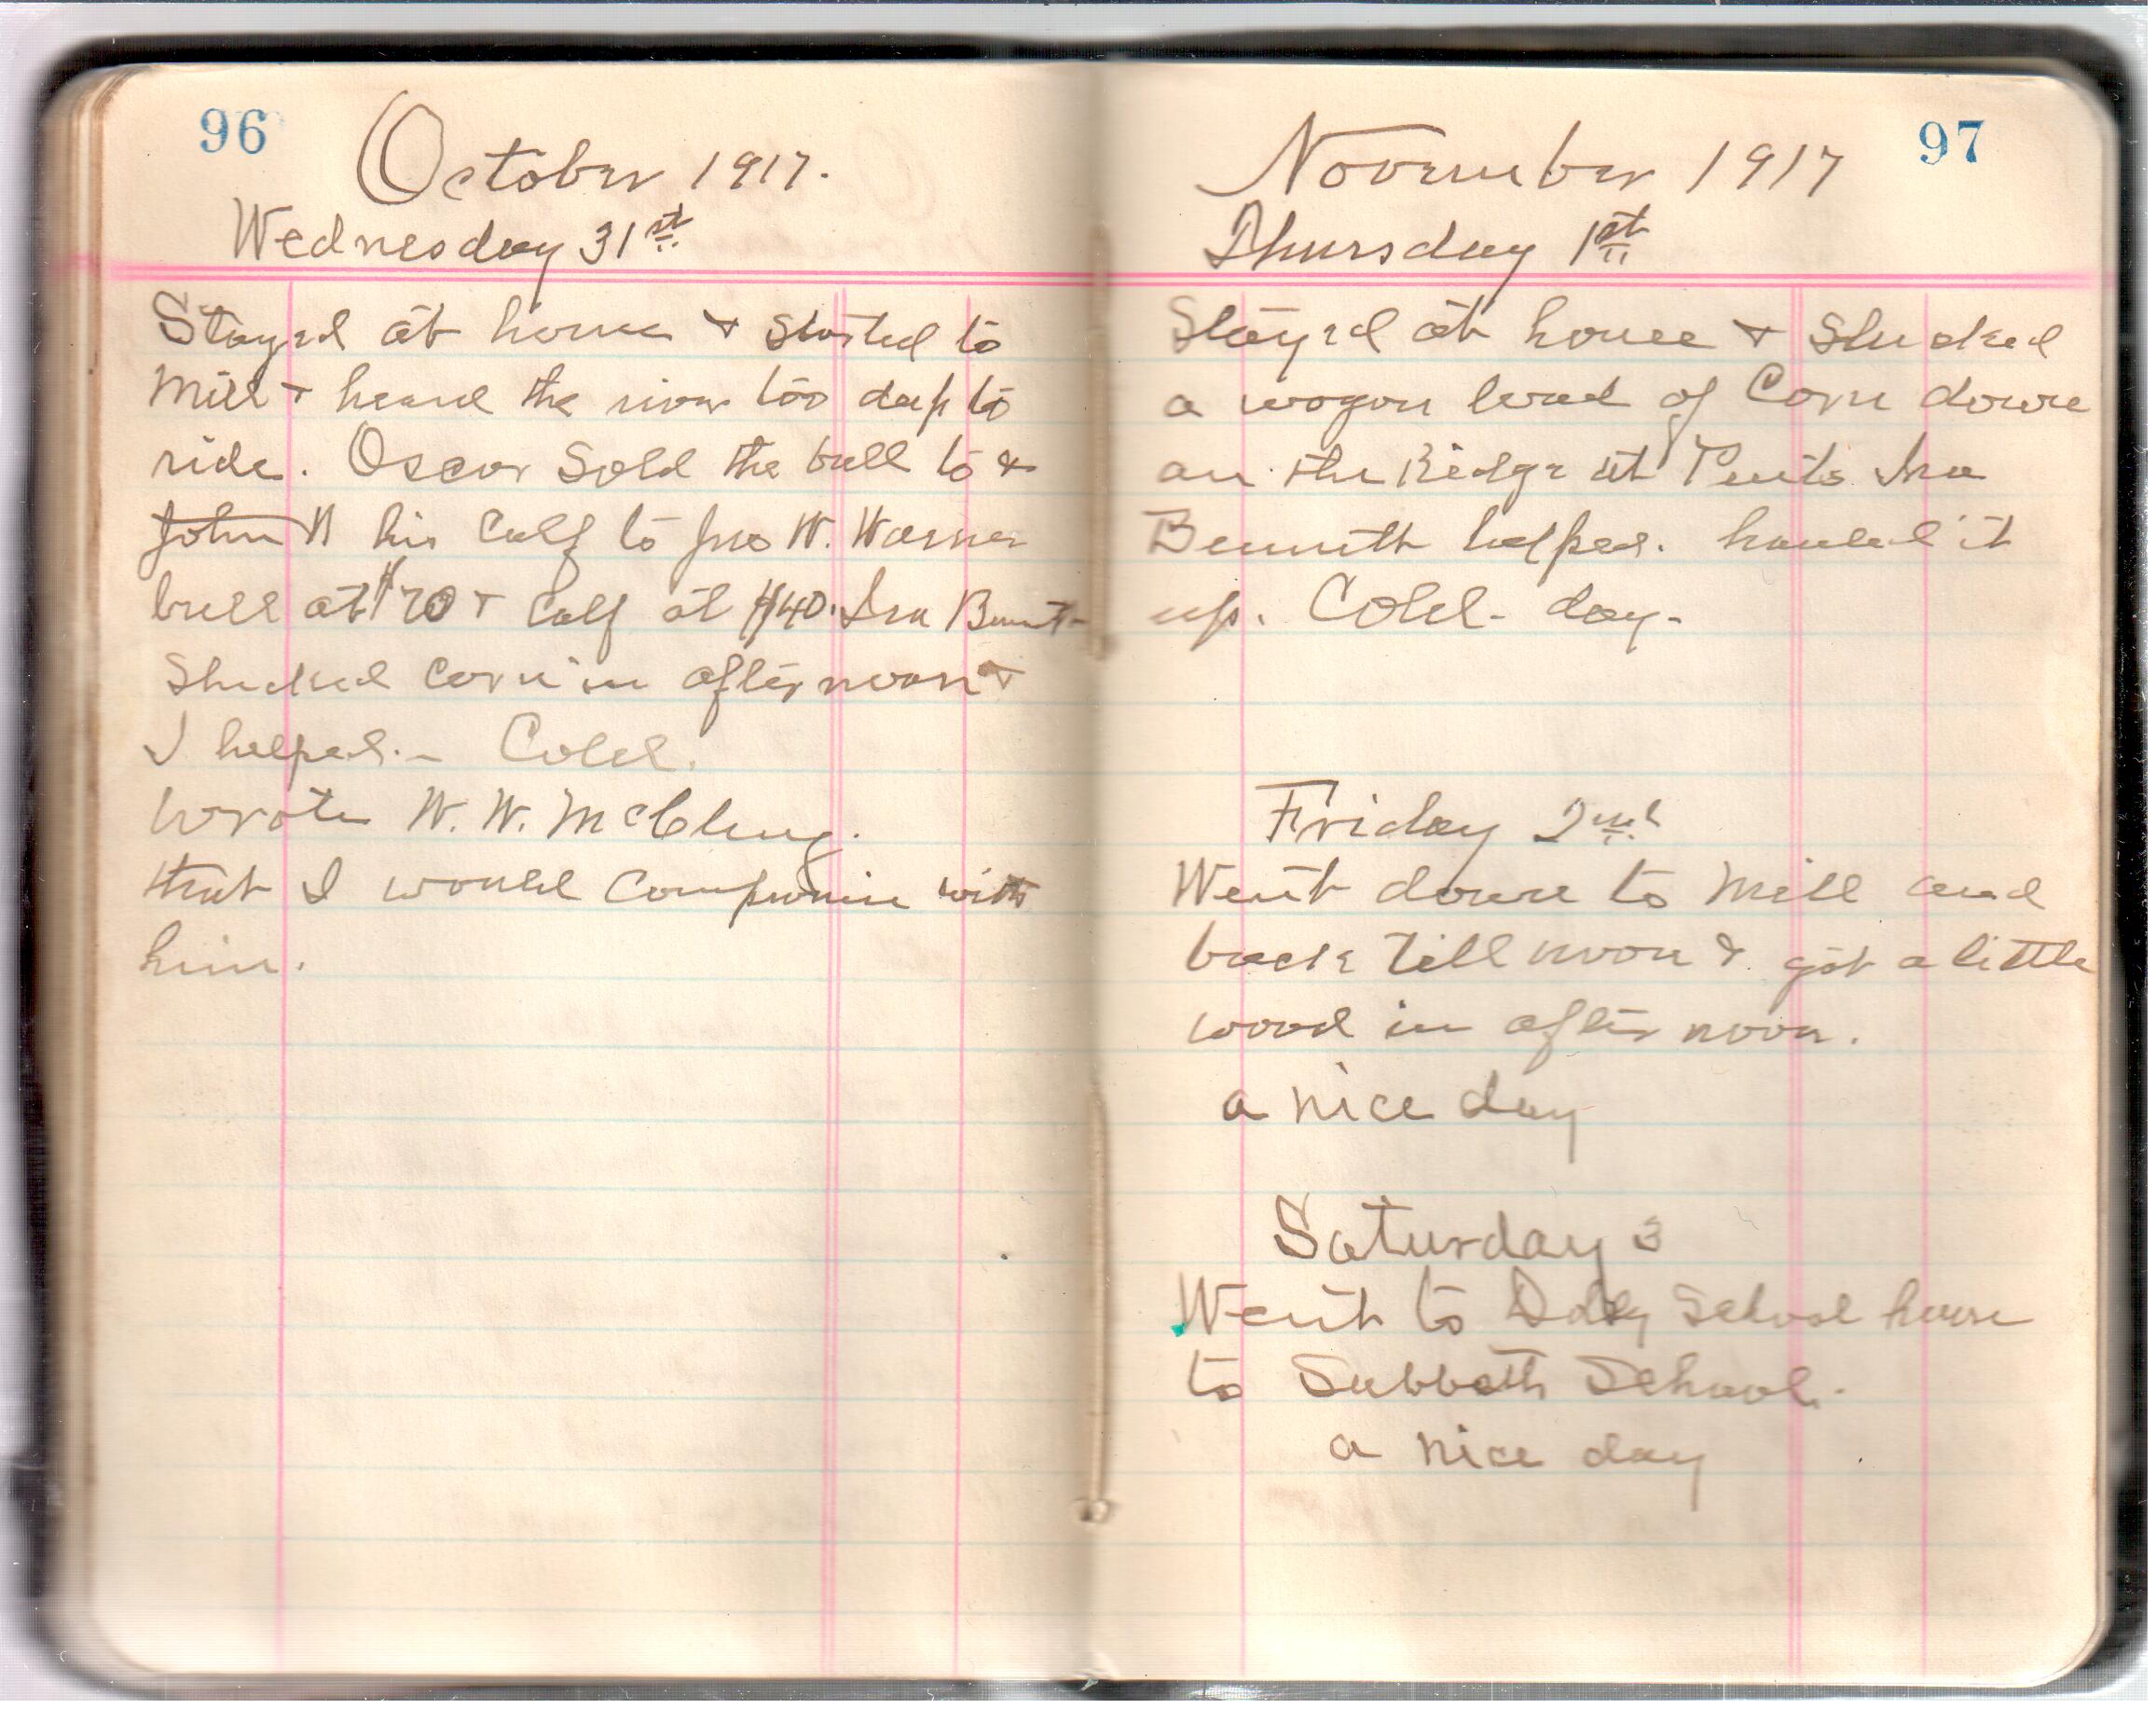 96
October 1917.
Wednesday 31st
Stayed at home & started to
Mill & heard the river too deep to
ride. Oscar Sold the bull to &
John N his Calf to Jno W. Warner
bull at $70 & Calf at $40. Ira Bennett
Shucked Corn in afternoon &
I helped. - Cold.
Wrote W. W. McClung.
that I would Compromise with
him.
97
November 1917
Thursday 1st
Stayed at home & Shucked
a wagon load of Corn down
on the Ridge at Ira
Bennett helped. hauled it
up. Cold - day -
Friday 2nd
Went down to Mill and
back till noon & got a little
wood in after noon.
a nice day
Saturday 3
Went to School house
to Sabbath School.
a nice day